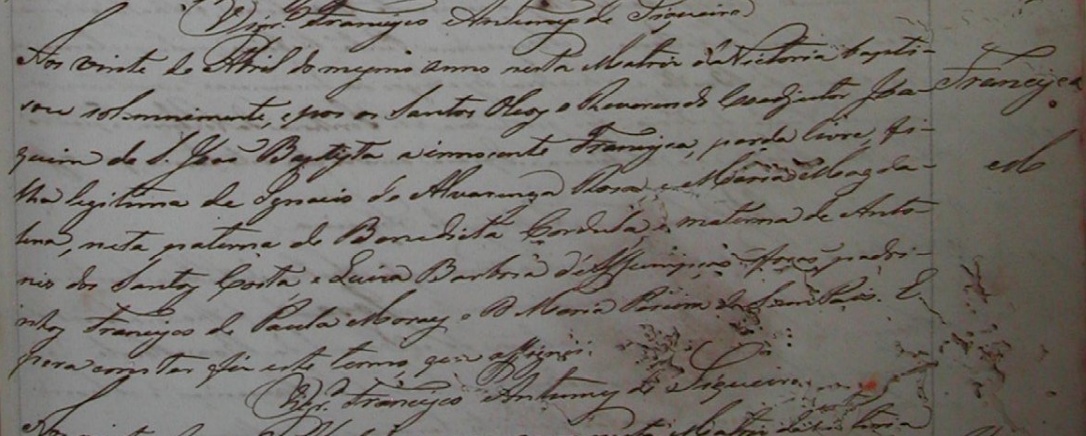 Vigr.º Francisco Antunes de Siqueira
Aos vinte de Abril do mesmo anno nesta Matriz da Victoria bapti-
sou solemnimente, e pos os Santos Oleos o Reverendo Coadjutor Joa- Francisca
quim de S. João Baptista a innocente Francisca, parda livre, fi-
lha legitima de Ignacio de Alvarenga Rosa e Maria Magda-
lena, neta paterna de Benedicta Cordula, e materna de Anto-
nio dos Santos Costa e Luiza Barboza d'Assumpção forão padri-
nhos Francisco de Paula Moraes e D. Maria Pereira de. E
para constar fiz este termo, que assignei.
Vigr.º Francisco Antunes de Siqueira
nesta Matriz da Victoria